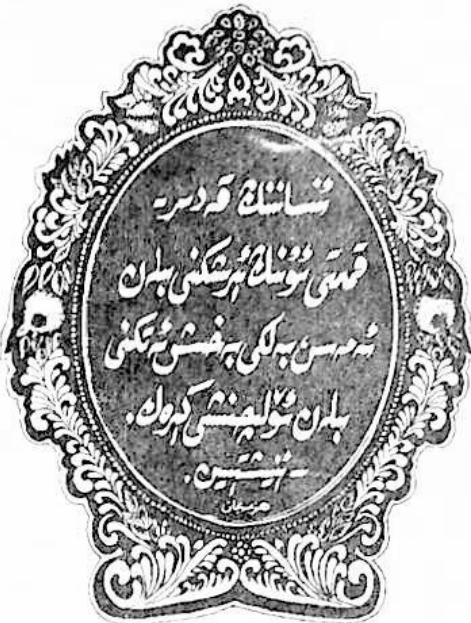 ئىنساننىڭ قەدىر-
قىممىتى ئۇنىڭ ئېرىشكىنى بىلەن
ئەمەس بەلكى بەخش ئەتكىنى
بىلەن ئۆلچىنىشى كېرەك.
– ئېينىشتېين.